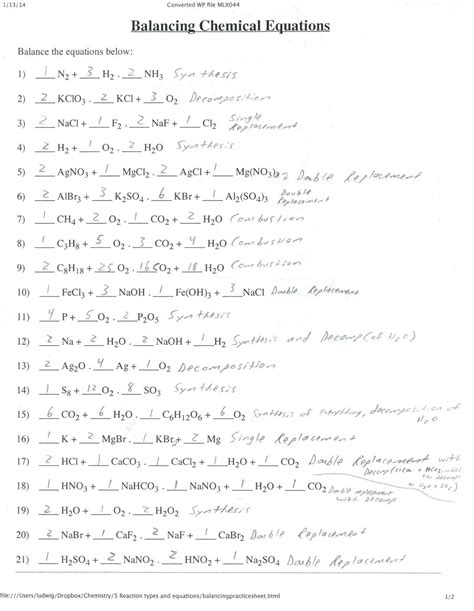 1/13/14 Converted WP file MLX044
Balancing Chemical Equations
Balance the equations below:
1) 1 N2 + 3 H2 . 2 NH3 Synthesis
2) 2 KClO3 . 2 KCl + 3 O2 Decomposition
3) 2 NaCl + 1 F2 . 2 NaF + 1 Cl2 Single Replacement
4) 2 H2 + 1 O2 . 2 H2O Synthesis
5) 2 AgNO3 + 1 MgCl2 . 2 AgCl + 1 Mg(NO3)2 Double Replacement
6) 2 AlBr3 + 3 K2SO4 . 6 KBr + 1 Al2(SO4)3 Double Replacement
7) 1 CH4 + 2 O2 . 1 CO2 + 2 H2O Combustion
8) 1 C3H8 + 5 O2 . 3 CO2 + 4 H2O Combustion
9) 2 C8H18 + 25 O2 . 16 CO2 + 18 H2O Combustion
10) 1 FeCl3 + 3 NaOH . 1 Fe(OH)3 + 3 NaCl Double Replacement
11) 4 P + 5 O2 . 2 P2O5 Synthesis
12) 2 Na + 2 H2O . 2 NaOH + 1 H2 Synthesis and Decomp (of H2O)
13) 2 Ag2O . 4 Ag + 1 O2 Decomposition
14) 1 S8 + 12 O2 . 8 SO3 Synthesis
15) 6 CO2 + 6 H2O . 1 C6H12O6 + 6 O2 Synthesis of everything, decomposition of H2O
16) 1 K + 2 MgBr . 1 KBr + 2 Mg Single Replacement
17) 2 HCl + 1 CaCO3 . 1 CaCl2 + 1 H2O + 1 CO2 Double Replacement with Decomp
18) 1 HNO3 + 1 NaHCO3 . 1 NaNO3 + 1 H2O + 1 CO2 Double replacement with decomp
19) 2 H2O + 1 O2 . 2 H2O2 Synthesis
20) 2 NaBr + 1 CaF2 . 2 NaF + 1 CaBr2 Double Replacement
21) 1 H2SO4 + 2 NaNO2 . 2 HNO2 + 1 Na2SO4 Double Replacement
file:///Users/ludwig/Dropbox/Chemistry/5 Reaction types and equations/balancingpracticesheet.html 1/2